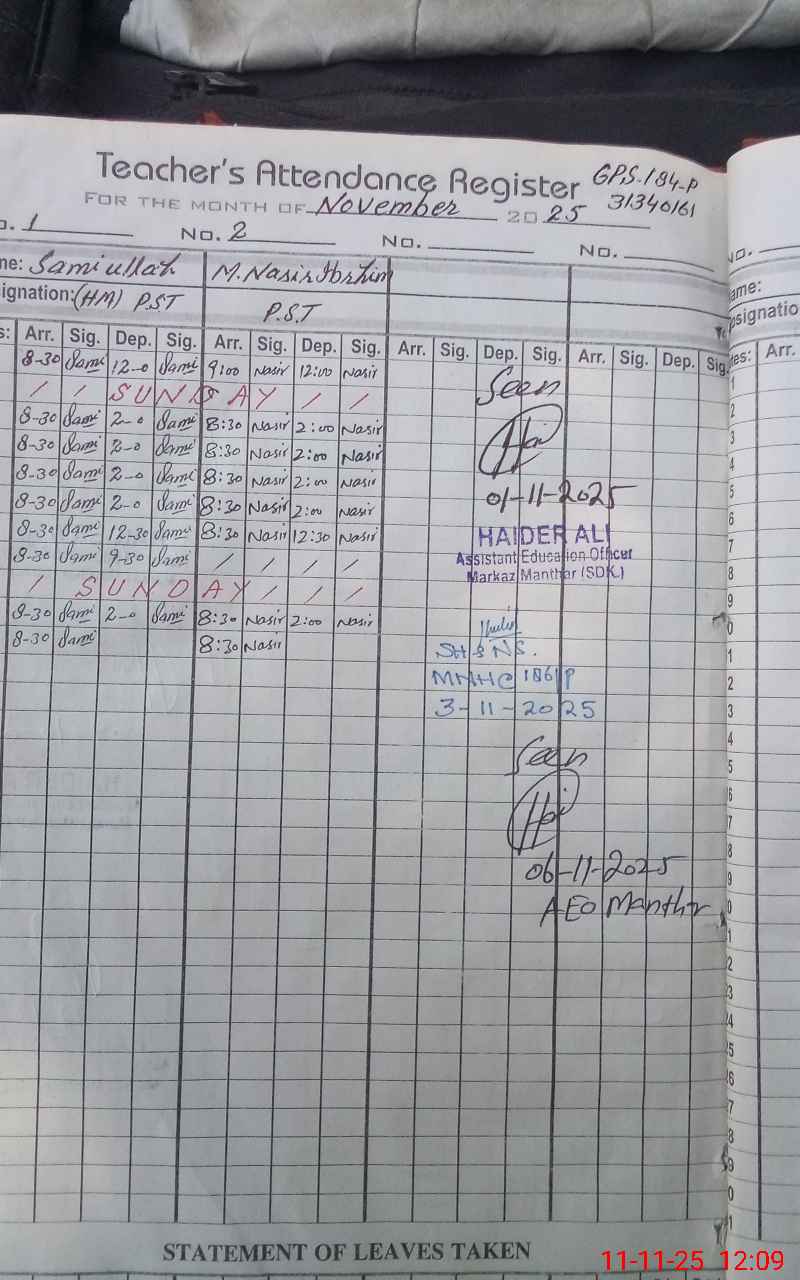 Teacher's Attendance Register GPS-184-P
FOR THE MONTH OF November 2025 31340161
o. 1 No. 2 No. No. No.
me: Samiullah M. Nasir Ibrhim ame:
signation: (HM) P.S.T P.S.T esignatio
s: Arr. Sig. Dep. Sig. Arr. Sig. Dep. Sig. Arr. Sig. Dep. Sig. Arr. Sig. Dep. Sig. tes: Arr.
8-30 Sami 12-0 Sami 9:00 Nasir 12:00 Nasir
/ / SUNDAY / /
8-30 Sami 2-0 Sami 8:30 Nasir 2:00 Nasir
8-30 Sami 2-0 Sami 8:30 Nasir 2:00 Nasir
8-30 Sami 2-0 Sami 8:30 Nasir 2:00 Nasir
8-30 Sami 2-0 Sami 8:30 Nasir 2:00 Nasir
8-30 Sami 12-30 Sami 8:30 Nasir 12:30 Nasir
8-30 Sami 9-30 Sami / / / /
/ SUNDAY / / /
8-30 Sami 2-0 Sami 8:30 Nasir 2:00 Nasir
8-30 Sami 8:30 Nasir
Seen
01-11-2025
HAIDER ALI
Assistant Education Officer
Markaz Manthar (SDK.)
SH&NS.
MNHC 186/P
3-11-2025
Seen
06-11-2025
AEO Manthr
1
2
3
4
5
6
7
8
9
0
1
2
3
4
5
6
7
8
9
0
1
2
3
4
5
6
7
8
9
0
1
STATEMENT OF LEAVES TAKEN
11-11-25 12:09